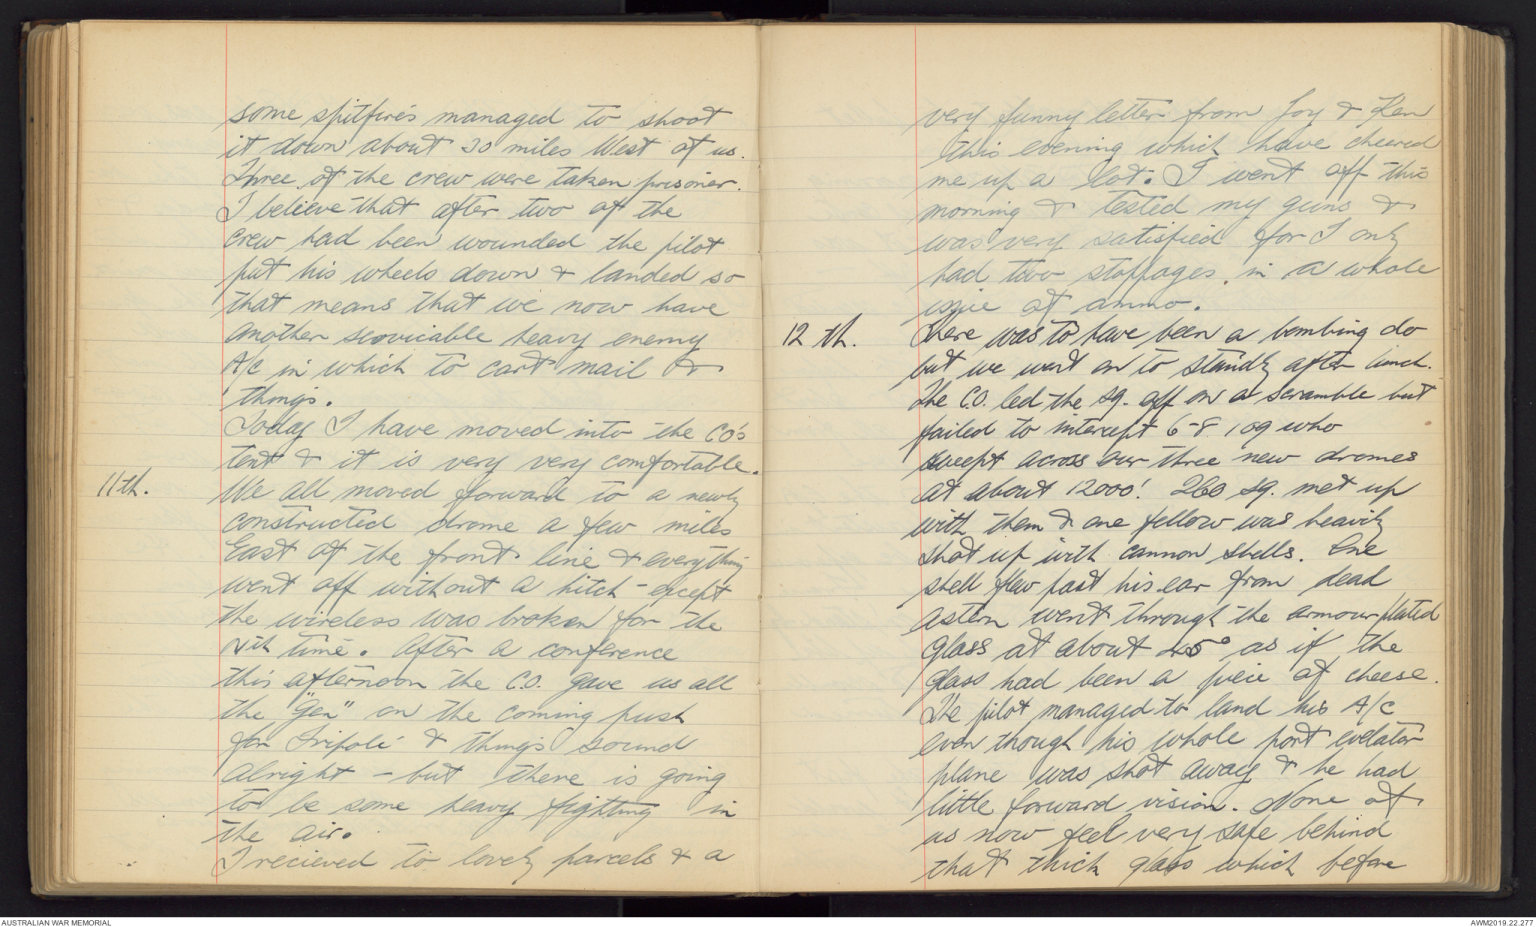 some spitfires managed to shoot
it down about 30 miles West of us.
Three of the crew were taken prisoner.
I believe that after two of the
crew had been wounded the pilot
put his wheels down & landed so
that means that we now have
another serviceable heavy enemy
A/c in which to cart mail &
things.
Today I have moved into the CO's
tent & it is very very comfortable.
11th.
We all moved forward to a newly
constructed drome a few miles
East of the front line & everything
went off without a hitch - except
the wireless was broken for the
time. After a conference
this afternoon the C.O. gave us all
the "gen" on the coming push
for Tripoli & things sound
alright - but there is going
to be some heavy fighting in
the air.
I recieved to lovely parcels & a
very funny letter from Joy & Ken
this evening which have cheered
me up a lot. I went off this
morning & tested my guns &
was very satisfied for I only
had two stoppages in a whole
issue of ammo.
12th.
There was to have been a bombing do
but we went on to standby after lunch.
The C.O. led the sq. off on a scramble but
failed to intercept 6-8 109 who
sweept across our three new dromes
at about 12000'. 260 sq. met up
with them & one fellow was heavily
shot up with cannon shells. One
shell flew past his ear from dead
astern went through the armour plated
glass at about 25° as if the
glass had been a peice of cheese.
The pilot managed to land his A/c
even though his whole port evelater
plane was shot away & he had
little forward vision. None of
us now feel very safe behind
that thick glass which before
AUSTRALIAN WAR MEMORIAL
AWM2019.22.277